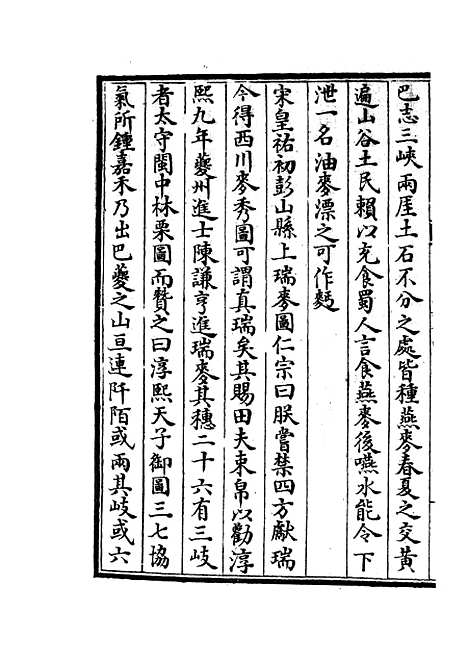 巴志三峽兩厓土石不分之處皆種燕麥春夏之交黄
遍山谷土民賴以充食蜀人言食燕麥後嚥水能令下
泄一名油麥漂之可作麫
宋皇祐初彭山縣上瑞麥圖仁宗曰朕嘗禁四方獻瑞
今得西川麥秀圖可謂真瑞矣其賜田夫束帛以勸淳
熙九年夔州進士陳謙亨進瑞麥其穗二十六有三岐
者太守閩中林栗圖而贊之曰淳熙天子御圖三七協
氣所鍾嘉禾乃出巴夔之山亘連阡陌或兩其岐或六